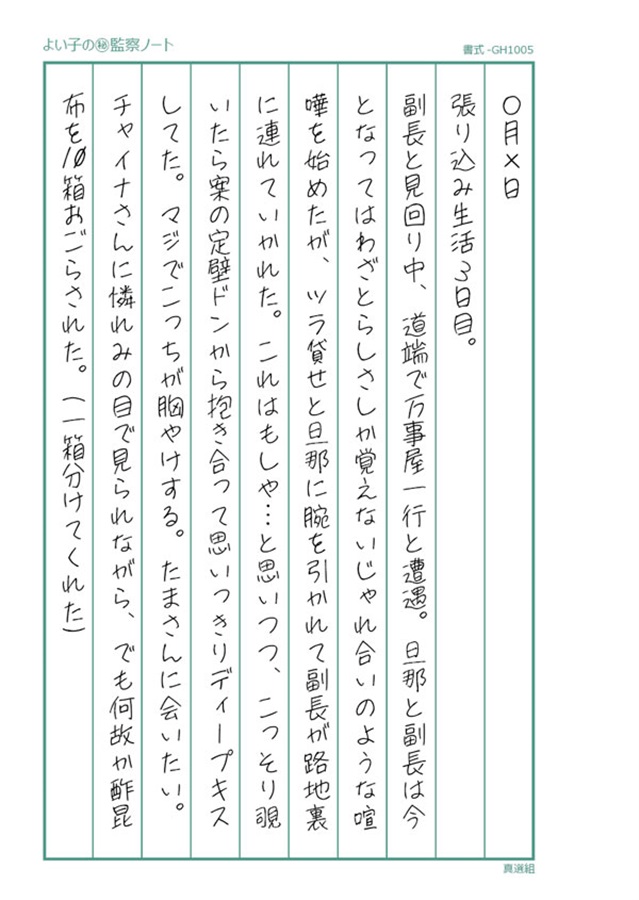 よい子の㊙監察ノート
書式-GH1005
〇月×日
張り込み生活3日目。
副長と見回り中、道端で万事屋一行と遭遇。旦那と副長は今
となってはわざとらしさしか覚えないじゃれ合いのような喧
嘩を始めたが、ツラ貸せと旦那に腕を引かれて副長が路地裏
に連れていかれた。これはもしや…と思いつつ、こっそり覗
いたら案の定壁ドンから抱き合って思いっきりディープキス
してた。マジでこっちが胸やけする。たまさんに会いたい。
チャイナさんに憐れみの目で見られながら、でも何故か酢昆
布を10箱おごらされた。(一箱分けてくれた)
真選組